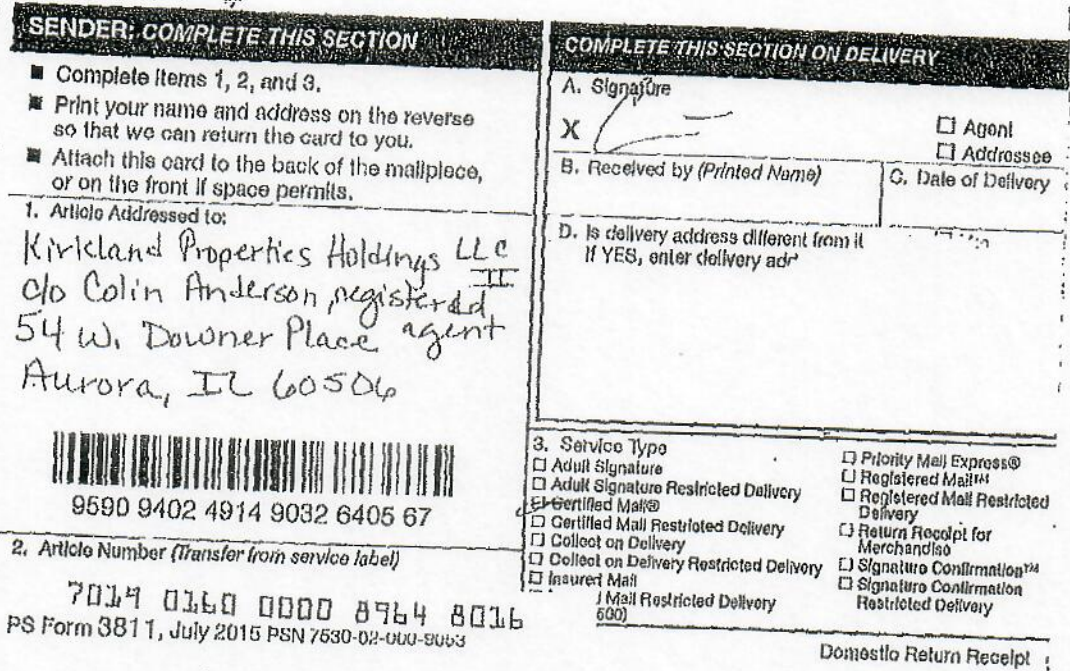 SENDER: COMPLETE THIS SECTION
■ Complete items 1, 2, and 3.
■ Print your name and address on the reverse
so that we can return the card to you.
■ Attach this card to the back of the mailpiece,
or on the front if space permits.
1. Article Addressed to:
Kirkland Properties Holdings LLC
II
c/o Colin Anderson, registered
agent
54 W. Downer Place
Aurora, IL 60506
9590 9402 4914 9032 6405 67
2. Article Number (Transfer from service label)
7019 0160 0000 8964 8016
PS Form 3811, July 2015 PSN 7530-02-000-9053
COMPLETE THIS SECTION ON DELIVERY
A. Signature
X
☐ Agent
☐ Addressee
B. Received by (Printed Name)
C. Date of Delivery
D. Is delivery address different from it
If YES, enter delivery adr
3. Service Type
☐ Adult Signature
☐ Adult Signature Restricted Delivery
☐ Certified Mail®
☐ Certified Mail Restricted Delivery
☐ Collect on Delivery
☐ Collect on Delivery Restricted Delivery
☐ Insured Mail
Mail Restricted Delivery
500)
☐ Priority Mail Express®
☐ Registered Mail™
☐ Registered Mail Restricted
Delivery
☐ Return Receipt for
Merchandise
☐ Signature Confirmation™
☐ Signature Confirmation
Restricted Delivery
Domestic Return Receipt